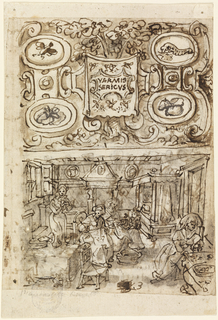 VERMIS
SERICVS